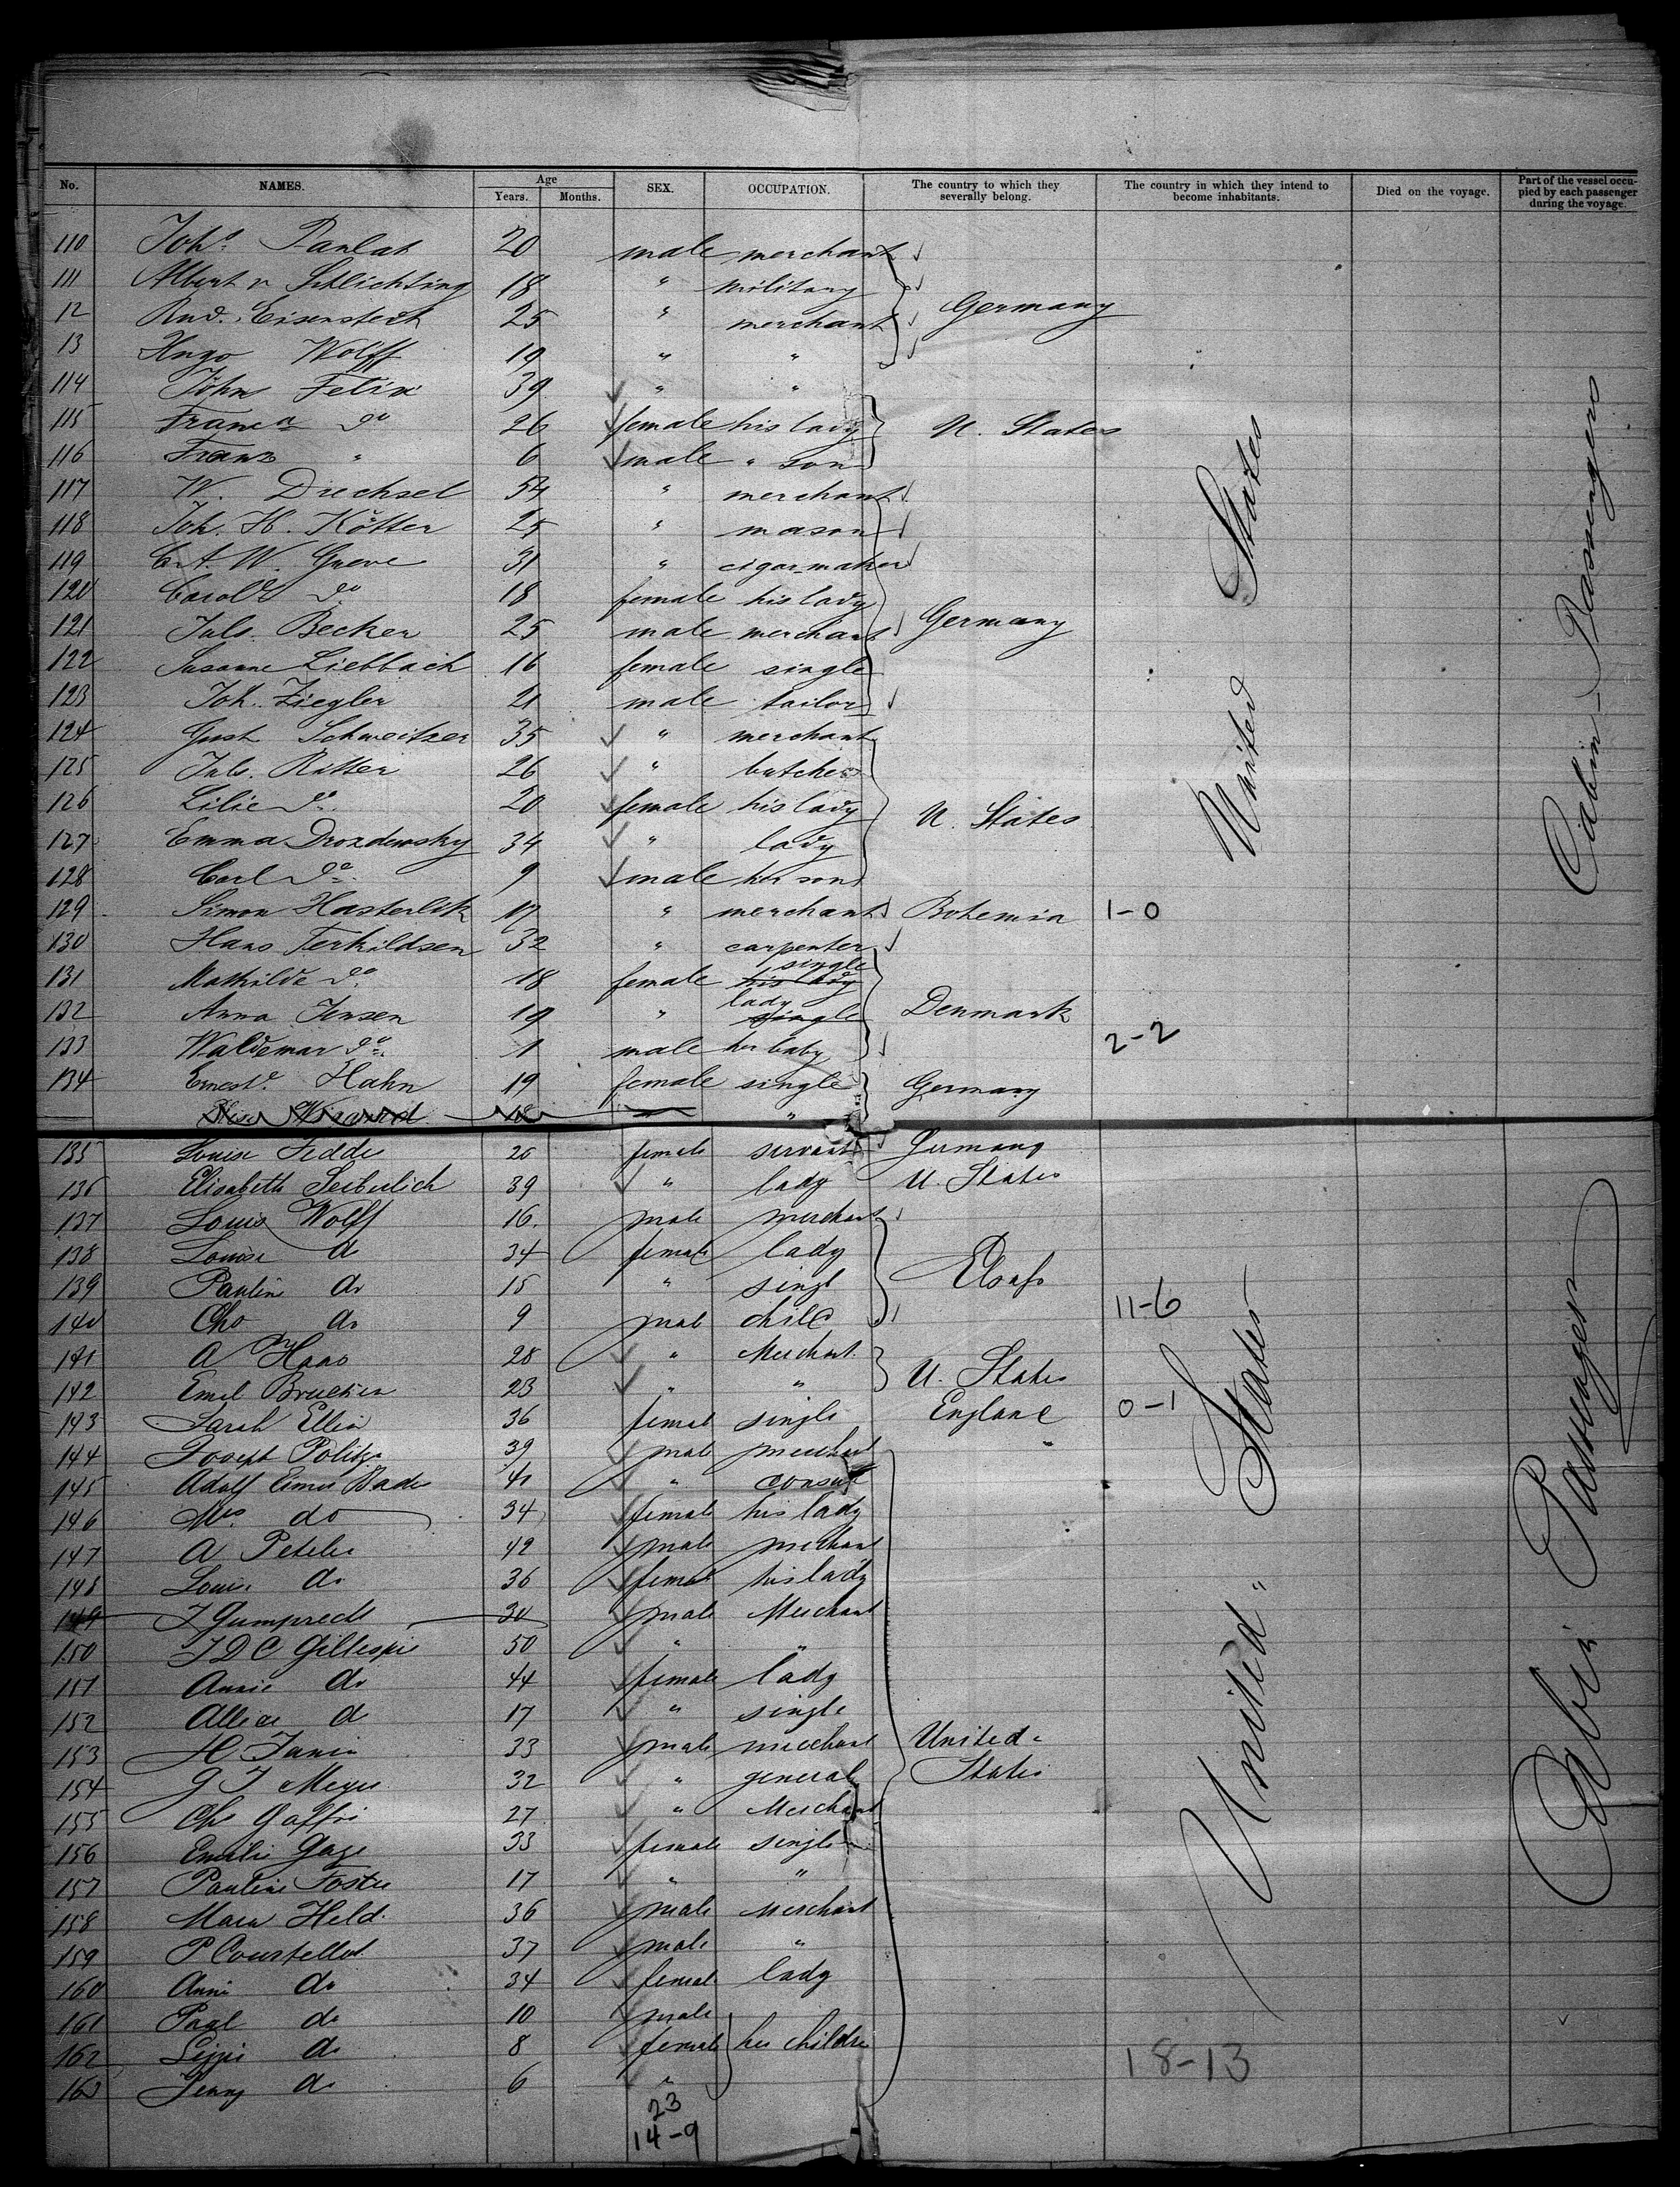 No. NAMES. Age Years. Months. SEX. OCCUPATION. The country to which they severally belong. The country in which they intend to become inhabitants. Died on the voyage. Part of the vessel occupied by each passenger during the voyage.
110 Joh.s 20 male merchant
111 Albert v Schlichting 18 " military
12 Rud. Eisenstedt 25 " merchant Germany
13 Hugo Wolff 19 " "
114 John Felix 39 " "
115 Franca do 26 female his lady U. States
116 Franz " 6 male " son
117 W. Drechsel 54 " merchant
118 Joh. H. Kötter 25 " mason
119 W. Greve 31 " cigar-maker
120 Carole do 18 female his lady
121 Juls. Becker 25 male merchant Germany
122 Susanne Liebbach 16 female single
123 Joh. Ziegler 21 male tailor
124 Gust Schweitzer 35 " merchant
125 Juls. Ritter 26 " butcher
126 Lilie do 20 female his lady U. States
127 Emma Drozdewsky 34 " lady
128 Carl do 9 male her son
129 Simon Hasterlik 17 " merchant Bohemia 1-0
130 Hans Terkildsen 32 " carpenter
131 Mathilde do 18 female his lady single
132 Anna Jensen 19 " single lady Denmark
133 Waldemar do 1 male her baby 2-2
134 Erneste Hahn 19 female single Germany
18 "
United States
Cabin-Passengers
135 Louise Fedde 20 female servant Germany
136 Elisabeth Seiberlich 39 " lady U. States
137 Louis Wolff 16 male merchant
138 Louise do 34 female lady
139 Paulin do 15 " singl Elsass
140 do 9 mal child 11-6
141 A Haas 28 " Merchant
142 Emil Bruckner 23 " " U. States
143 Sarah Ellen 36 femal single England 0-1
144 Joseph Politzer 39 male merchant "
145 Adolf Bader 41 " consul
146 Mrs do 34 female his lady
147 A Peteler 42 male merchant
148 Louise do 36 femal his lady
149 J Gumprecht 30 male Merchant
150 J D C Gillespie 50 " "
151 Annie do 44 female lady
152 Allice do 17 " single
153 H 33 male merchant United
154 G J Meyer 32 " general States
155 Ch 27 " Merchant
156 Emilie Gage 33 female single
157 Pauline Foster 17 " "
158 Held 36 male Merchant
159 P Courtellot 37 male "
160 Anni do 34 female lady
161 Paul do 10 male
162 do 8 female her children
163 Jenny do 6 "
United States
Cabin Passenger
18-13
23
14-9